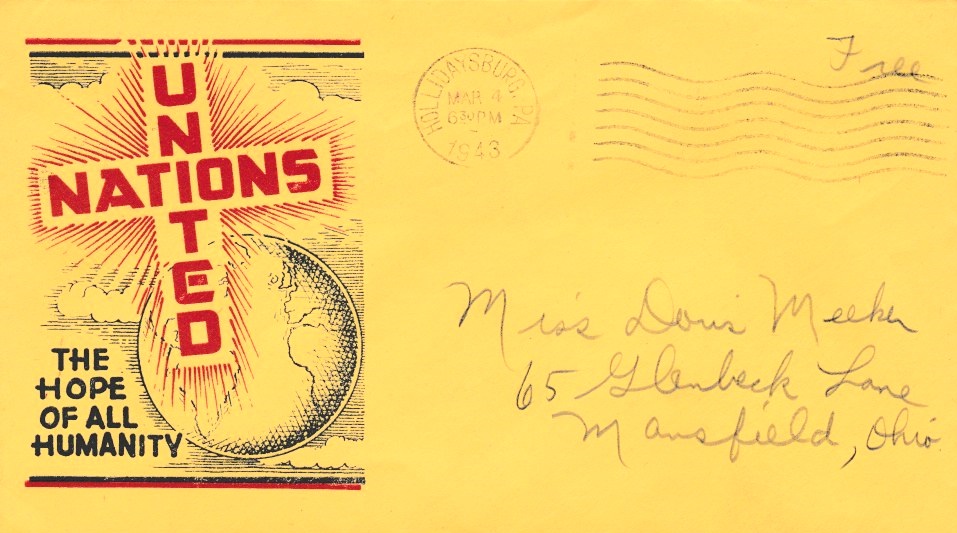 UNITED
NATIONS
THE
HOPE
OF ALL
HUMANITY
HOLLIDAYSBURG, PA
MAR 4
630PM
1943
Free
Miss Doris Meeker
65 Glenbeck Lane
Mansfield, Ohio